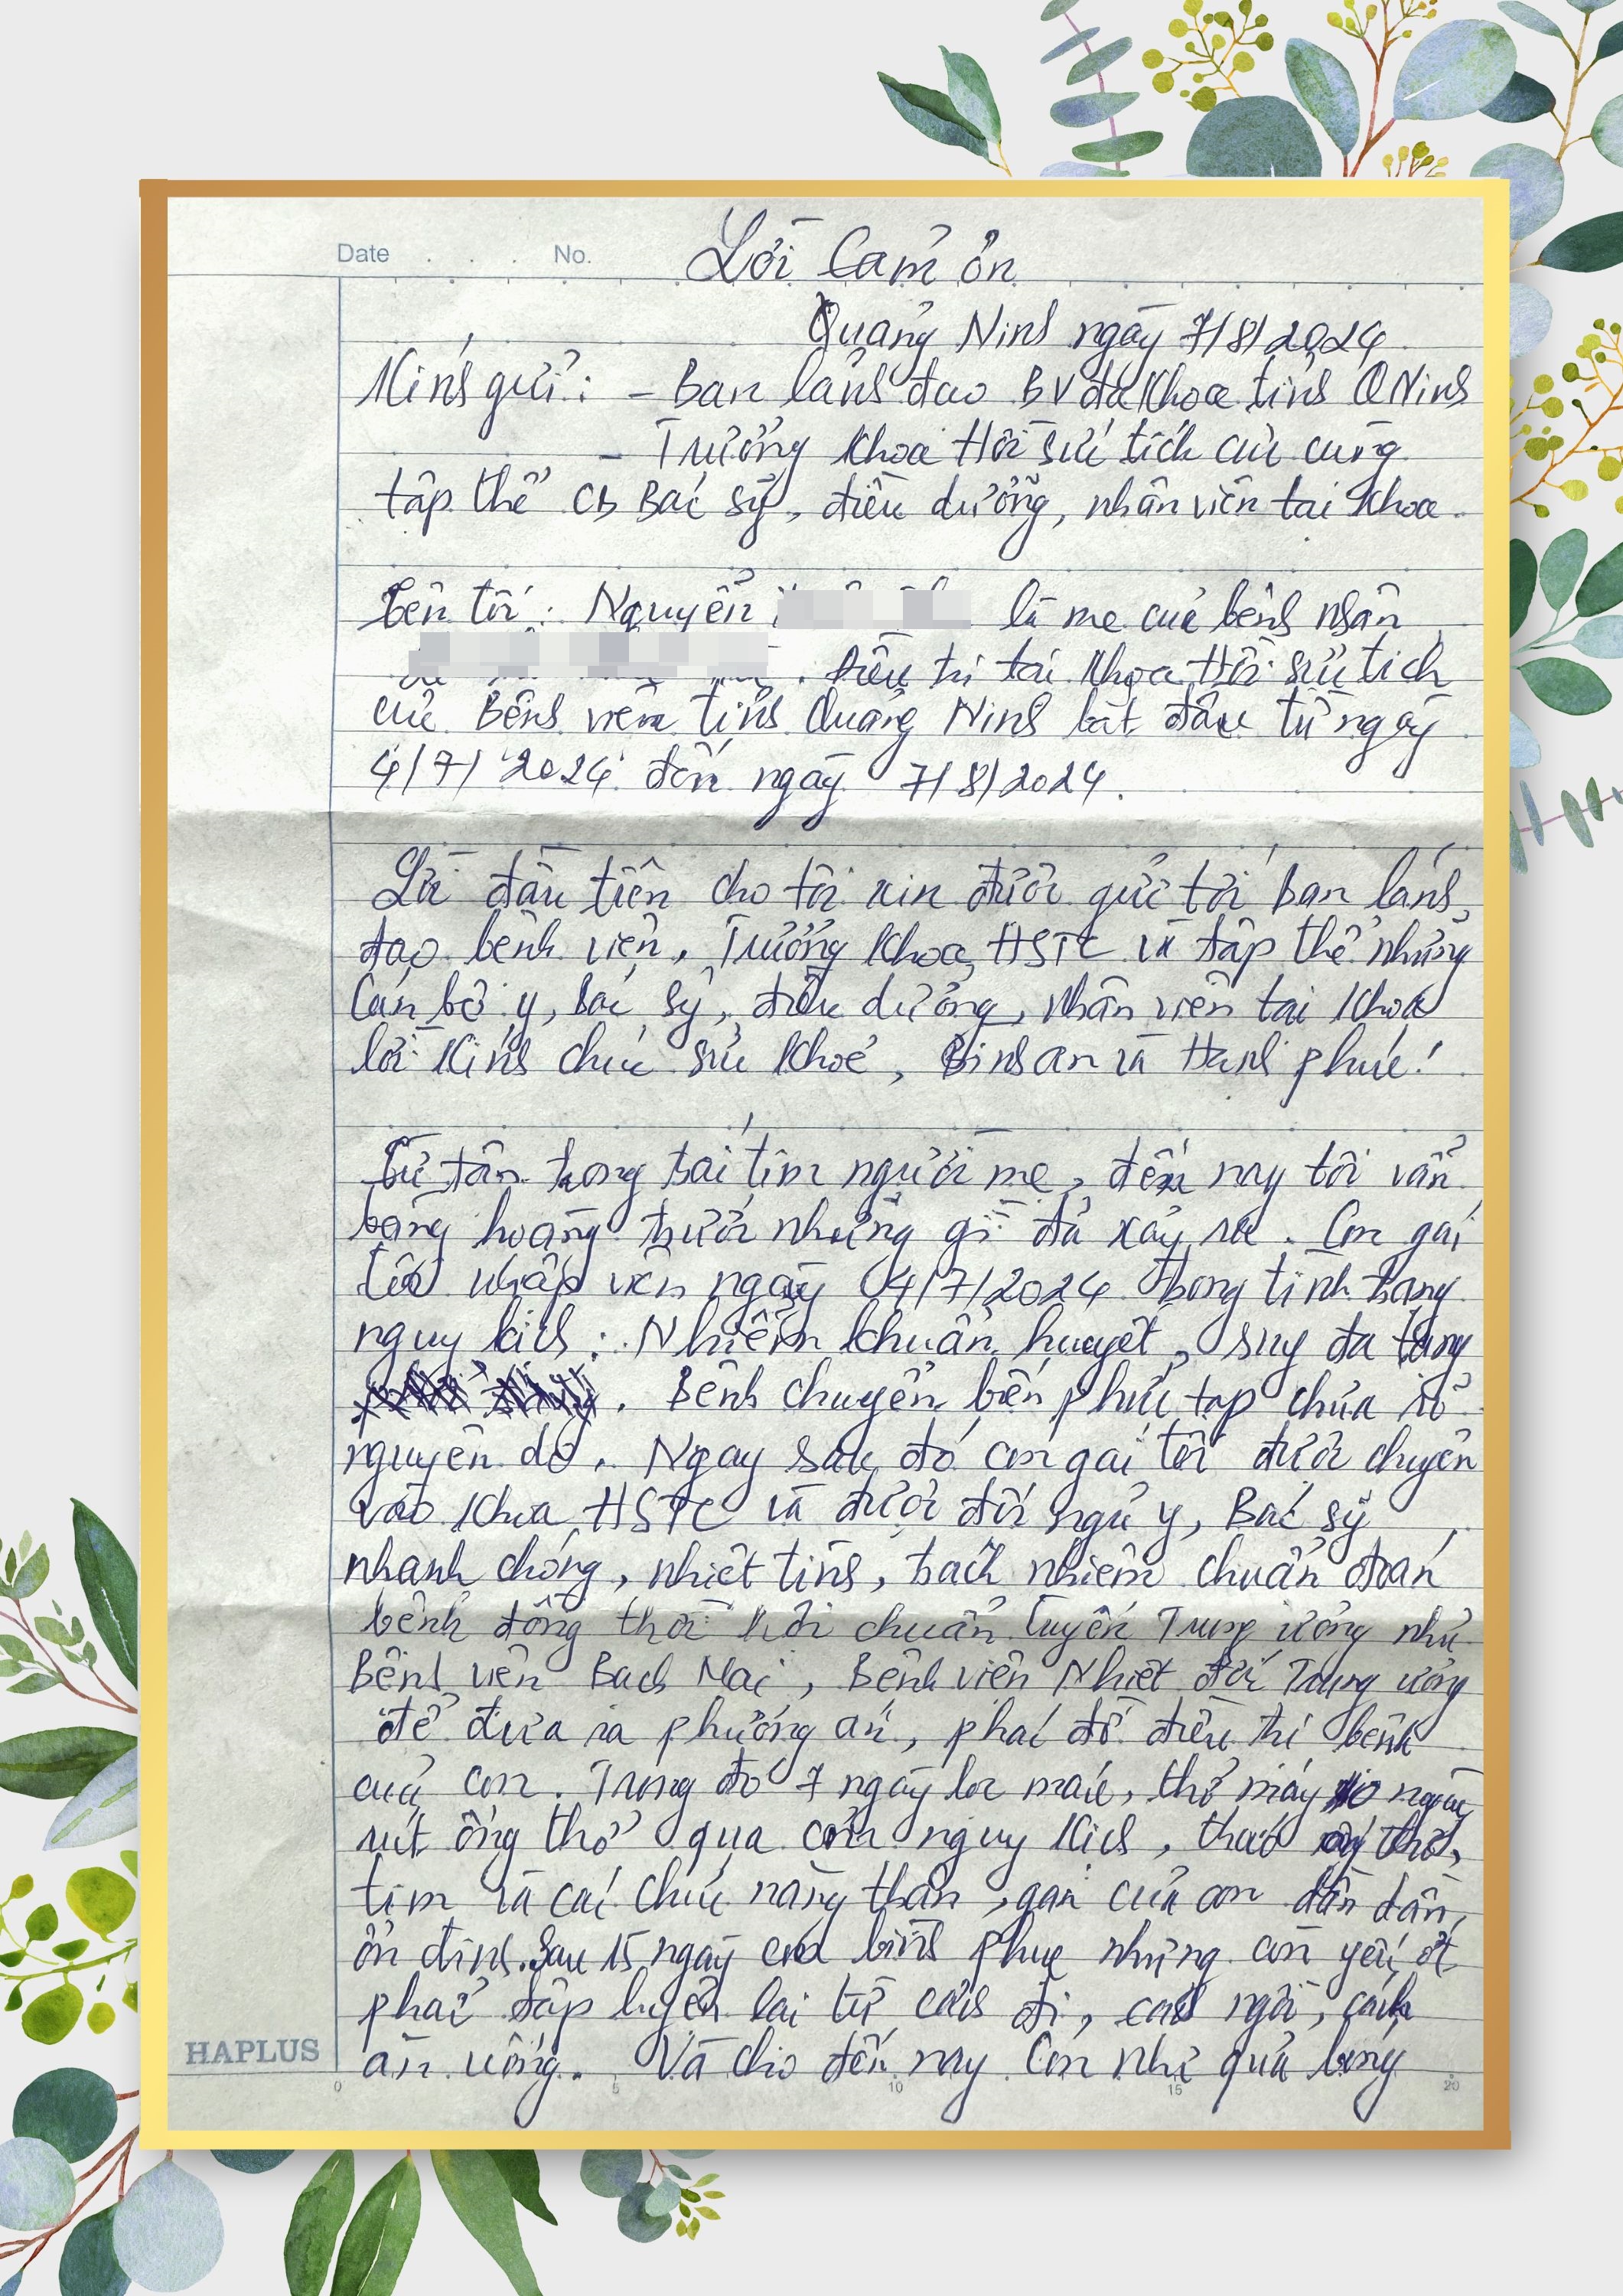 Date . . . No.
Lời Cảm ơn
Quảng Ninh ngày 7/8/2024
Kính gửi: - Ban lãnh đạo BV đa khoa tỉnh QNinh
- Trưởng khoa Hồi sức tích cực cùng
tập thể CB Bác sỹ, điều dưỡng, nhân viên tại khoa.
Tên tôi: Nguyễn là mẹ của bệnh nhân
. Điều trị tại khoa Hồi sức tích
cực Bệnh viện tỉnh Quảng Ninh bắt đầu từ ngày
4/7/2024 đến ngày 7/8/2024.
Lời đầu tiên cho tôi xin được gửi tới ban lãnh
đạo bệnh viện, Trưởng khoa HSTC và tập thể những
cán bộ y, Bác sỹ, điều dưỡng, nhân viên tại khoa
lời kính chúc sức khoẻ, Bình an và Hạnh phúc!
Từ tận trong trái tim người mẹ, đến nay tôi vẫn
bàng hoàng trước những gì đã xảy ra. Con gái
tôi nhập viện ngày 04/7/2024 trong tình trạng
nguy kịch: Nhiễm khuẩn huyết, suy đa tạng
. Bệnh chuyển biến phức tạp chưa rõ
nguyên do. Ngay sau đó con gái tôi được chuyển
vào khoa HSTC và được đội ngũ y, Bác sỹ
nhanh chóng, nhiệt tình, trách nhiệm chuẩn đoán
bệnh đồng thời hội chuẩn tuyến Trung ương như
Bệnh viện Bạch Mai, Bệnh viện Nhiệt đới Trung ương
để đưa ra phương án, phác đồ điều trị bệnh
của con. Trong đó 7 ngày lọc máu, thở máy 10 ngày
rút ống thở qua cơn nguy kịch, tháo ống thở,
tim và các chức năng thận, gan của con dần dần
ổn định. Sau 15 ngày con bình phục nhưng còn yếu ớt
phải tập luyện lại từ cách đi, cách ngồi, cách
ăn uống. Và cho đến nay con như quả bóng
HAPLUS
0 5 10 15 20